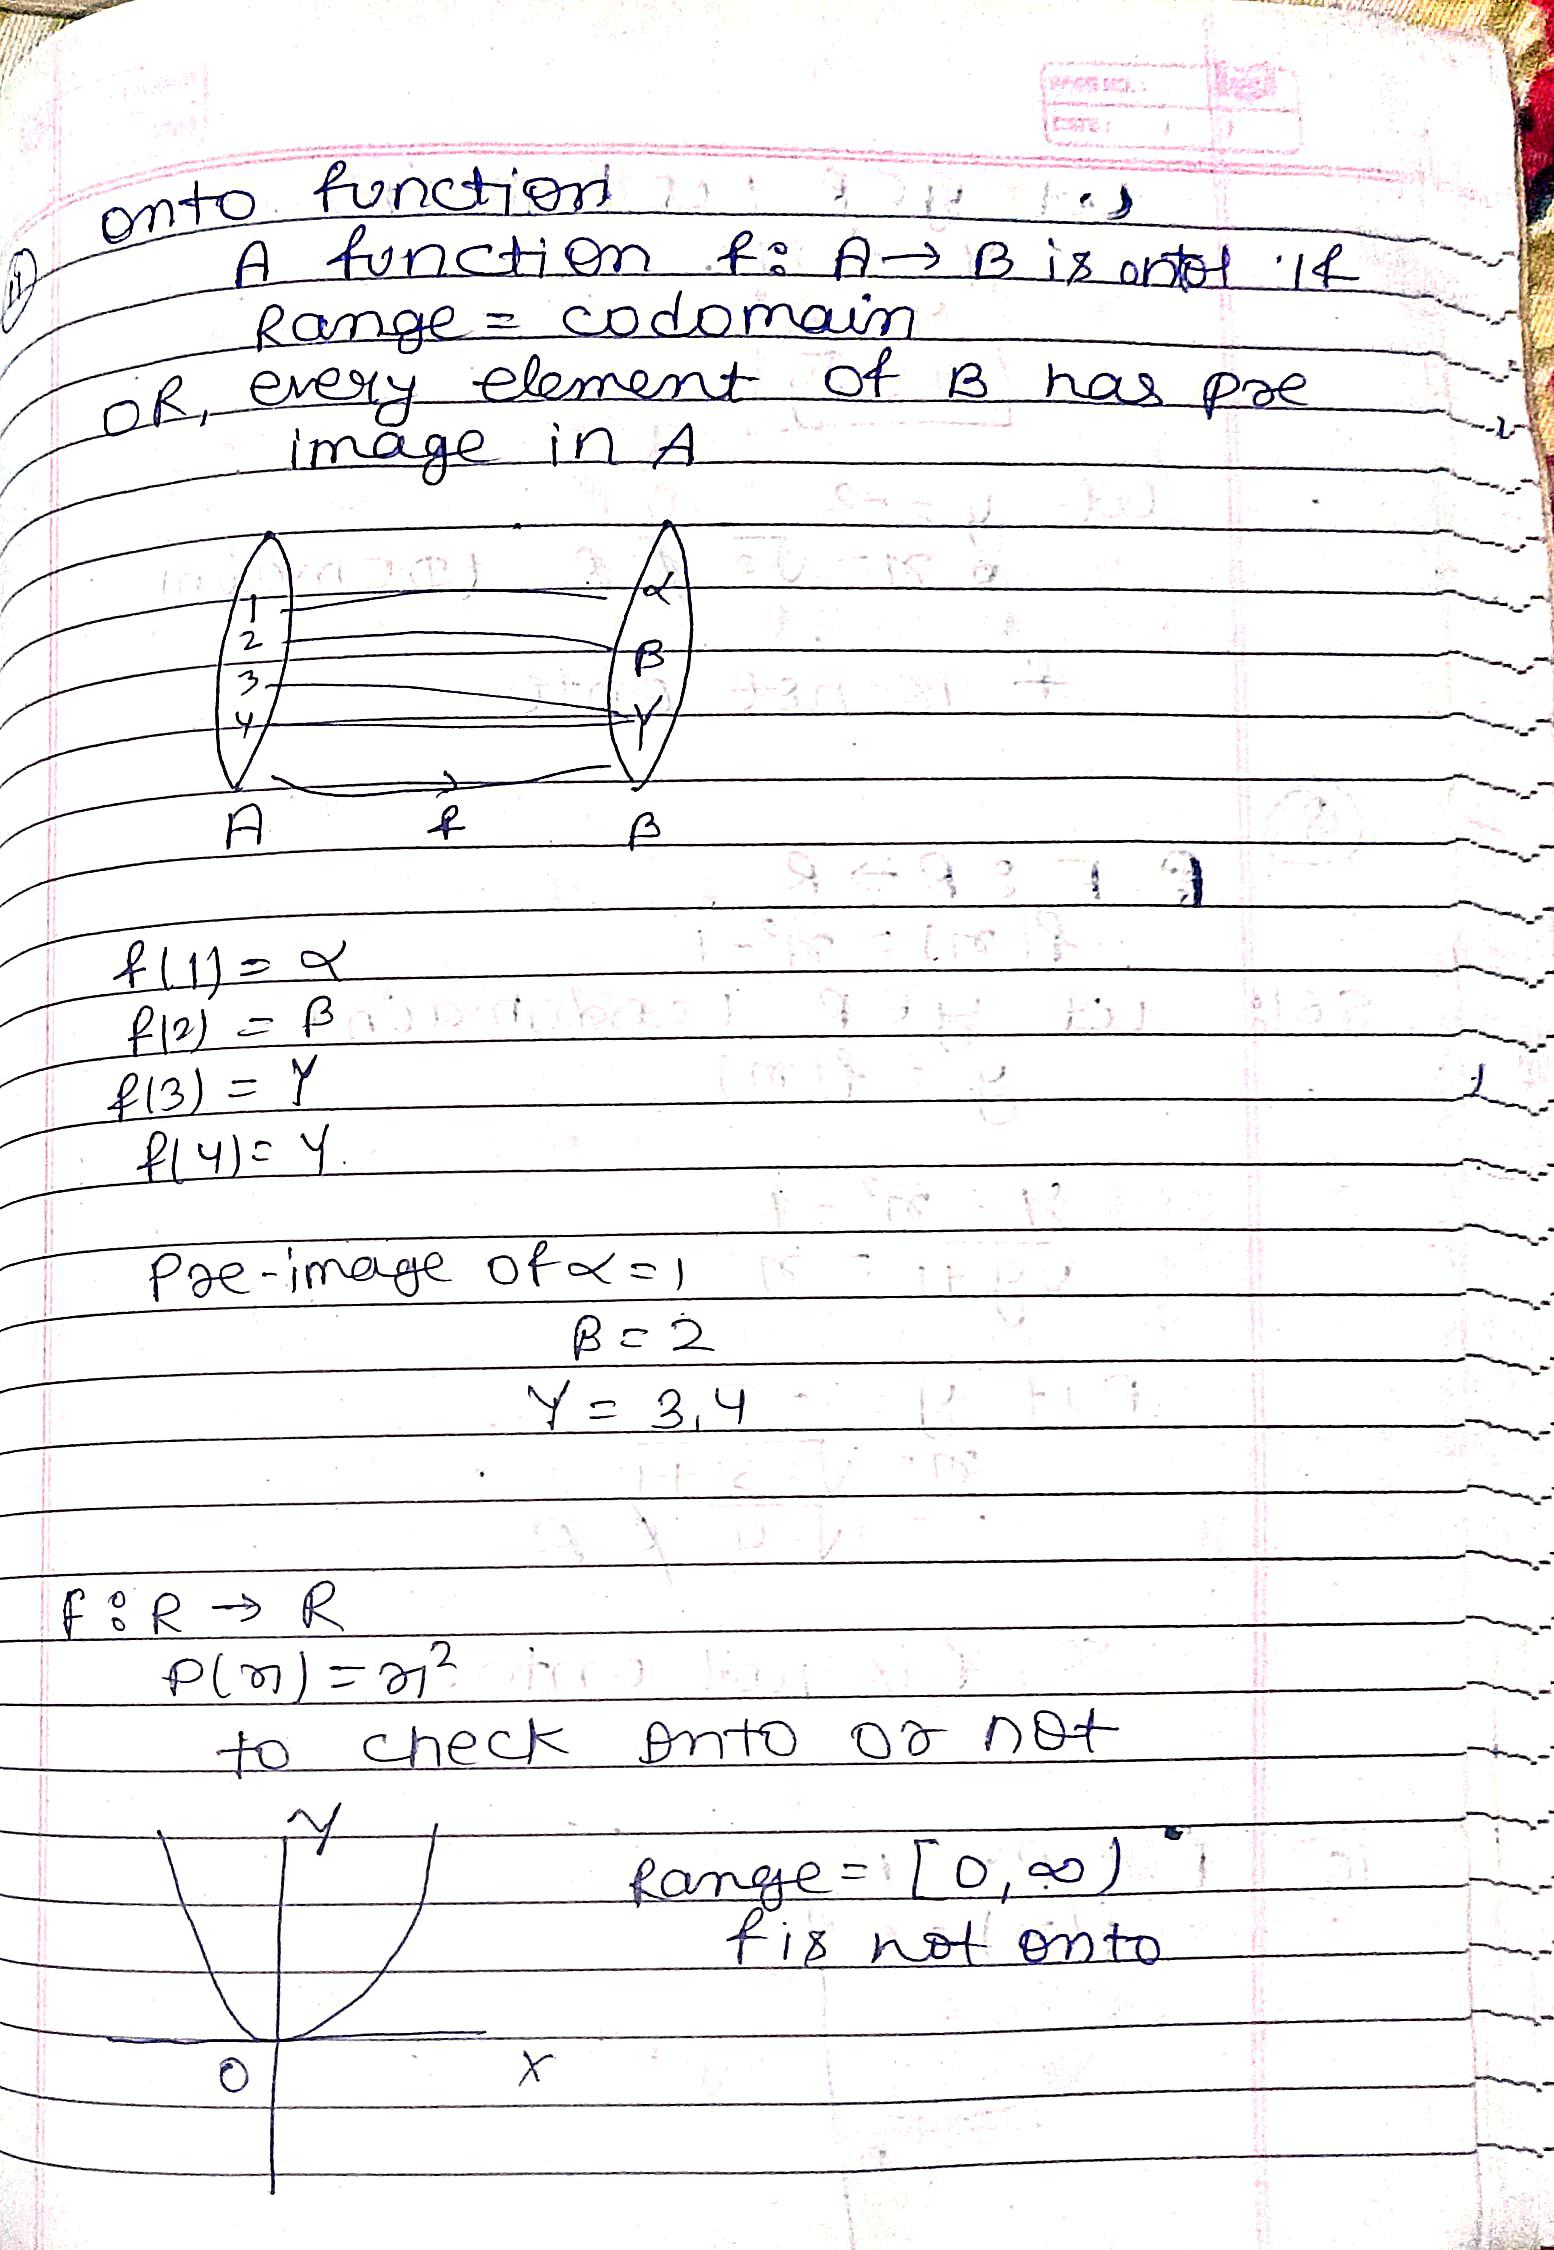 onto function
A function f: A → B is onto if
Range = codomain
OR, every element of B has pre
image in A
1 α
2 β
3 γ
4
A f B
f(1) = α
f(2) = β
f(3) = γ
f(4) = γ.
Pre-image of α = 1
β = 2
γ = 3,4
f: R → R
f(x) = x²
to check onto or not
Y
Range = [0, ∞)
f is not onto
O X